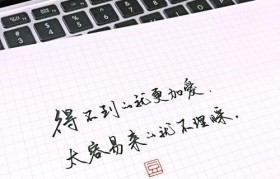 得不到的就更加爱.
太容易来的就不理睬.